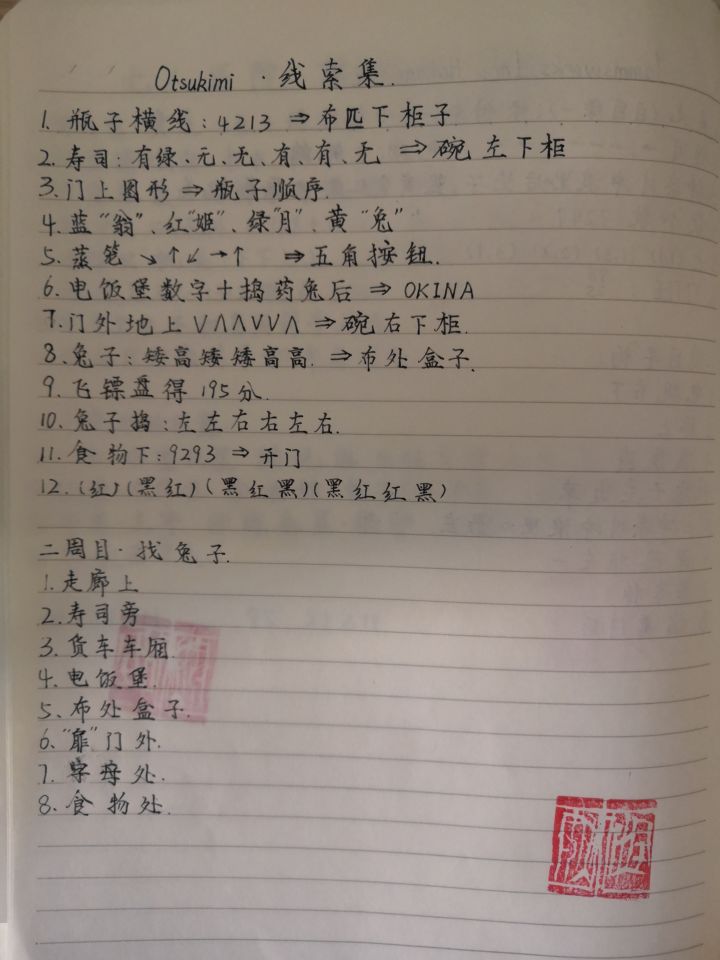 Otsukimi · 线索集.
1. 瓶子横线: 4213 ⇒ 布匹下柜子
2. 寿司: 有绿、无、无、有、有、无 ⇒ 碗左下柜
3. 门上图形 ⇒ 瓶子顺序.
4. 蓝"翁"、红"姬"、绿"月"、黄"兔"
5. 蒸笼 ↘↑↙→↑ ⇒ 五角按钮.
6. 电饭堡数字十捣药兔后 ⇒ OKINA
7. 门外地上 V∧∧VV∧ ⇒ 碗右下柜.
8. 兔子: 矮高矮矮高高. ⇒ 布处盒子.
9. 飞镖盘得 195分.
10. 兔子捣: 左左右右左右.
11. 食物下: 9293 ⇒ 开门
12. (红)(黑红)(黑红黑)(黑红红黑)
二周目·找兔子.
1. 走廊上
2. 寿司旁
3. 货车车厢.
4. 电饭堡.
5. 布处盒子.
6. "扉"门外.
7. 字母处.
8. 食物处.